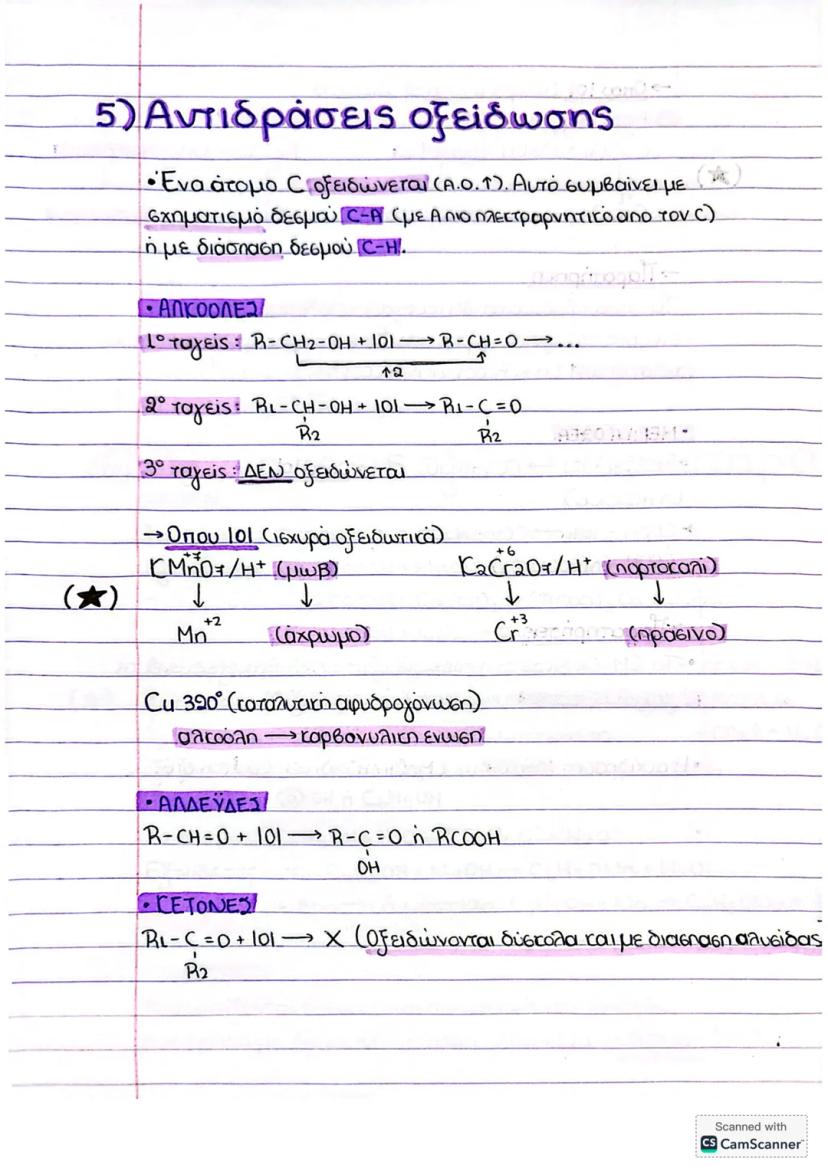 5) Αντιδράσεις οξείδωσης
• Ένα άτομο C οξειδώνεται (Α.Ο.↑). Αυτό συμβαίνει με
σχηματισμό δεσμού C-A (με Α πιο ηλεκτραρνητικό από τον C)
ή με διάσπαση δεσμού C-H.
• ΑΛΚΟΟΛΕΣ
1° ταγείς: R-CH2-OH + |O| → R-CH=O → ...
↑2
2° ταγείς: R1-CH-OH + |O| → R1-C=O
R2 R2
3° ταγείς: ΔΕΝ οξειδώνεται
→ Όπου |O| (ισχυρά οξειδωτικά)
+7 +6
KMnO7/H+ (μωβ) K2Cr2O7/H+ (πορτοκαλί)
(★) ↓ ↓ ↓ ↓
Mn+2 (άχρωμο) Cr+3 (πράσινο)
Cu 390° (καταλυτική αφυδρογόνωση)
αλκοόλη → καρβονυλική ένωση
• ΑΛΔΕΫΔΕΣ
R-CH=O + |O| → R-C=O ή RCOOH
OH
• ΚΕΤΟΝΕΣ
R1-C=O + |O| → X (Οξειδώνονται δύσκολα και με διάσπαση αλυσίδας
R2
Scanned with
CS CamScanner